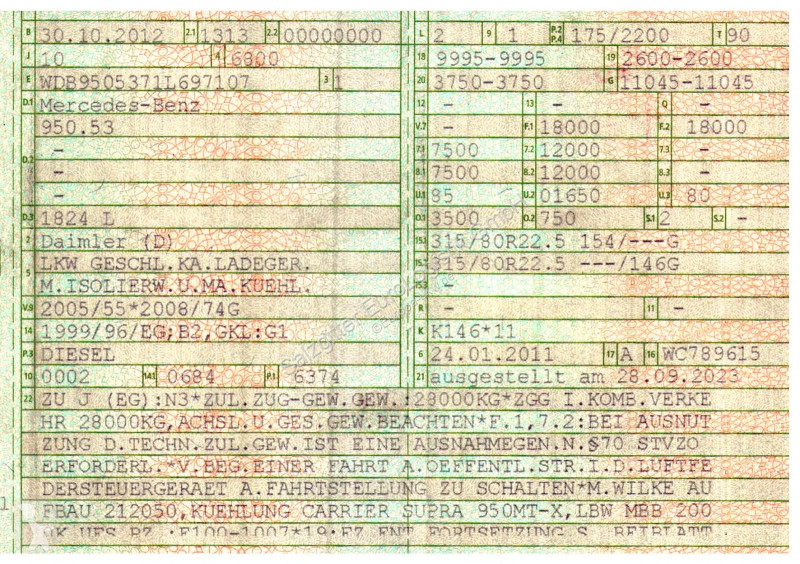 B 30.10.2012 2.1 1313 2.2 00000000
J 10 4 6800
E WDB9505371L697107 3 1
D.1 Mercedes-Benz
950.53
D.2 -
-
-
D.3 1824 L
2 Daimler (D)
5 LKW GESCHL.KA.LADEGER.
M.ISOLIERW.U.MA.KUEHL.
V.9 2005/55*2008/74G
14 1999/96/EG;B2,GKL:G1
P.3 DIESEL
10 0002 14.1 0684 P.1 6374
L 2 9 1 P.2 P.4 175/2200 T 90
18 9995-9995 19 2600-2600
20 3750-3750 G 11045-11045
12 - 13 - Q -
V.7 - F.1 18000 F.2 18000
7.1 7500 7.2 12000 7.3 -
8.1 7500 8.2 12000 8.3 -
U.1 85 U.2 01650 U.3 80
O.1 3500 O.2 750 S.1 2 S.2 -
15.1 315/80R22.5 154/---G
15.2 315/80R22.5 ---/146G
15.3 -
R - 11 -
K K146*11
6 24.01.2011 17 A 16 WC789615
21 ausgestellt am 28.09.2023
22 ZU J (EG):N3*ZUL.ZUG-GEW.GEW.:28000KG*ZGG I.KOMB.VERKE
HR 28000KG,ACHSL.U.GES.GEW.BEACHTEN*F.1,7.2:BEI AUSNUT
ZUNG D.TECHN.ZUL.GEW.IST EINE AUSNAHMEGEN.N.§70 STVZO
ERFORDERL.*V.BEG.EINER FAHRT A.OEFFENTL.STR.I.D.LUFTFE
DERSTEUERGERAET A.FAHRTSTELLUNG ZU SCHALTEN*M.WILKE AU
FBAU 212050,KUEHLUNG CARRIER SUPRA 950MT-X,LBW MBB 200
FORTSETZUNG S. BEIBLATT